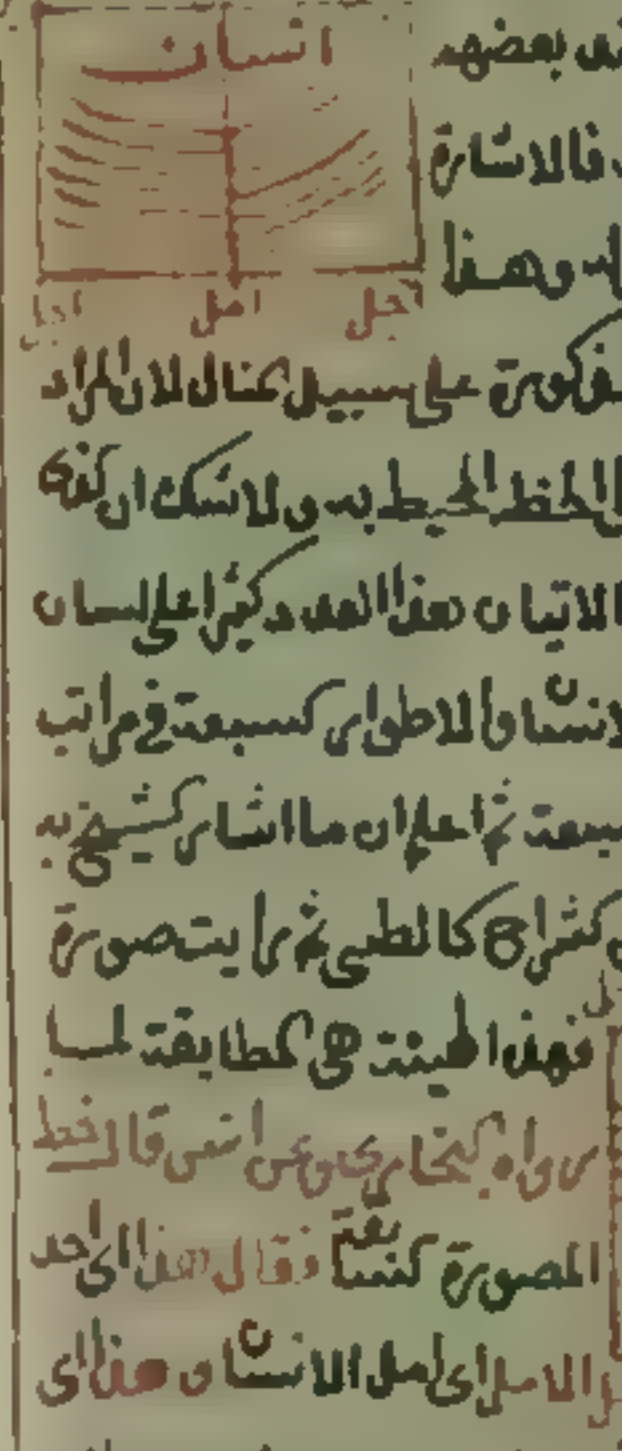 انسان
بعضهم
فالاشارة
وهذا
اجل امل اجل
مذكورة على سبيل المثال لان المراد
الخط المحيط به ولا شك ان الذي
الاتيان هذا العدد كثيرا على لسان
الانسان والاطوار السبعة في مراتب
سبعة ثم اعلم ان ما اشار الشيخ به
الشراح كالطيبي ثم رايت صورة
فهذا الهيئة هي المطابقة لما
رواه البخاري وعن انس قال خط
المصورة السابقة فقال هذا اى احد
الامل اى امل الانسان وهذا اى